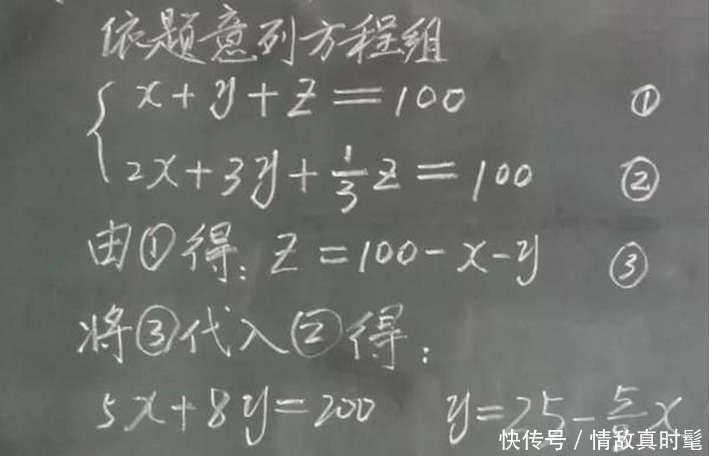 依题意列方程组
x+y+z=100 ①
2x+3y+1/3z=100 ②
由①得:z=100-x-y ③
将③代入②得:
5x+8y=200 y=25-5/8x
快传号/情敌真时髦